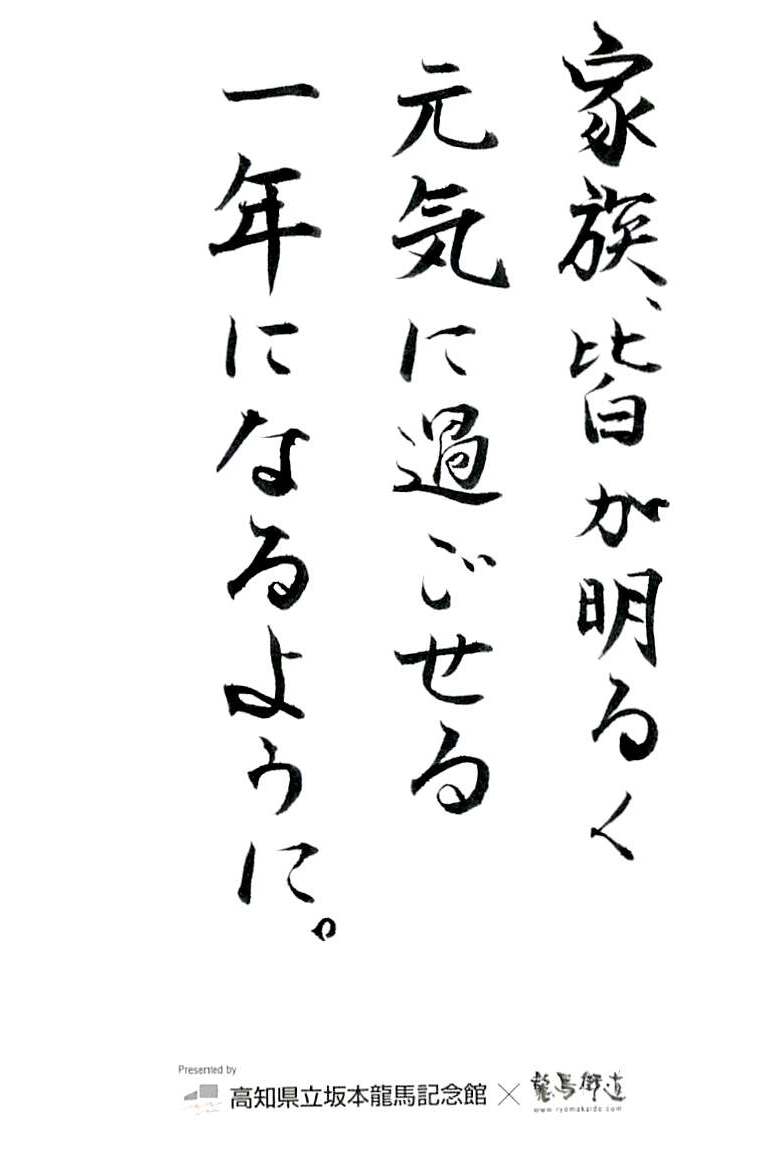 家族、皆が明るく
元気に過ごせる
一年になるように。
Presented by
高知県立坂本龍馬記念館×龍馬街道
www.ryomakaido.com